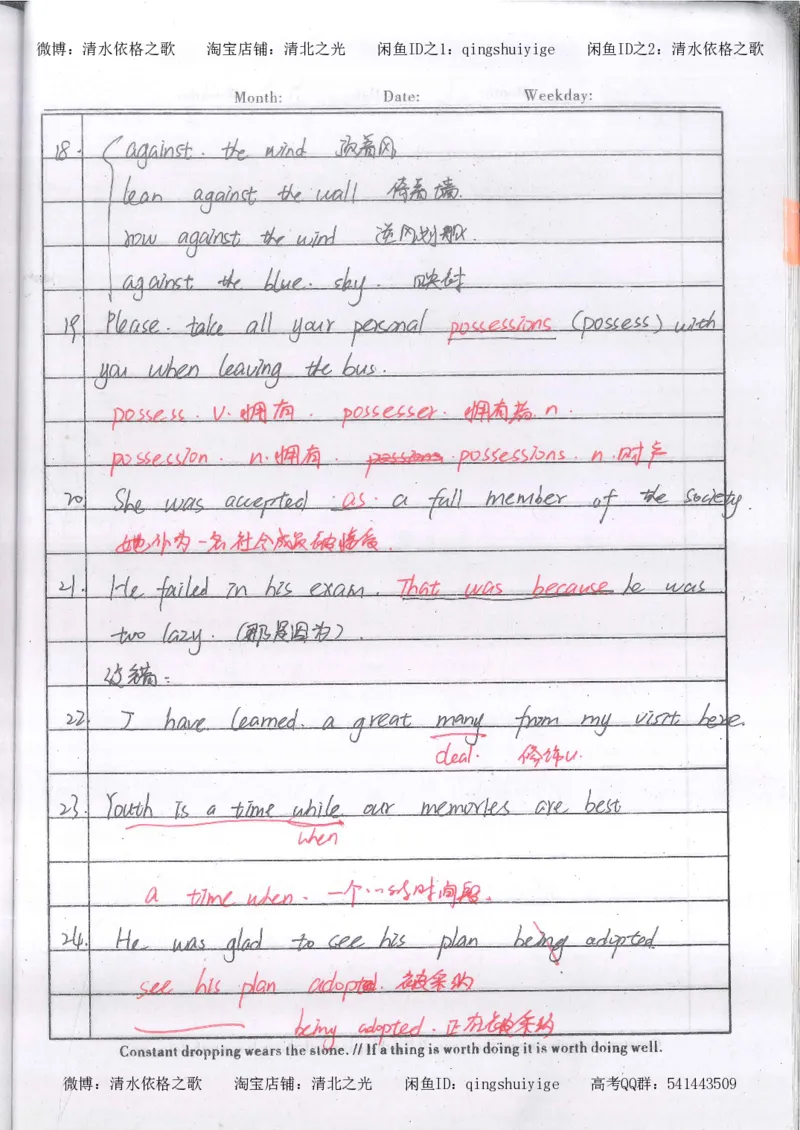 微博：清水依格之歌 淘宝店铺：清北之光 闲鱼ID之1：qingshuiyige 闲鱼ID之2：清水依格之歌
Month: Date: Weekday:
18. against the wind 顶着风
lean against the wall 倚着墙.
row against the wind 逆风划船.
against the blue sky. 映衬
19. Please take all your personal possessions (possess) with
you when leaving the bus.
possess. v. 拥有. possesser. 拥有者. n.
possession. n. 拥有. possessions. n. 财产
20 She was accepted as a full member of the society.
她作为一名社会成员被接受.
21. He failed in his exam. That was because he was
too lazy. (那是因为).
改错：
22. I have learned a great many from my visit here.
deal. 修饰u.
23. Youth is a time while our memories are best
when
a time when. 一个……的时间段.
24. He was glad to see his plan being adopted.
see his plan adopted. 被采纳
being adopted. 正在被采纳
Constant dropping wears the stone. // If a thing is worth doing it is worth doing well.
微博：清水依格之歌 淘宝店铺：清北之光 闲鱼ID：qingshuiyige 高考QQ群：541443509